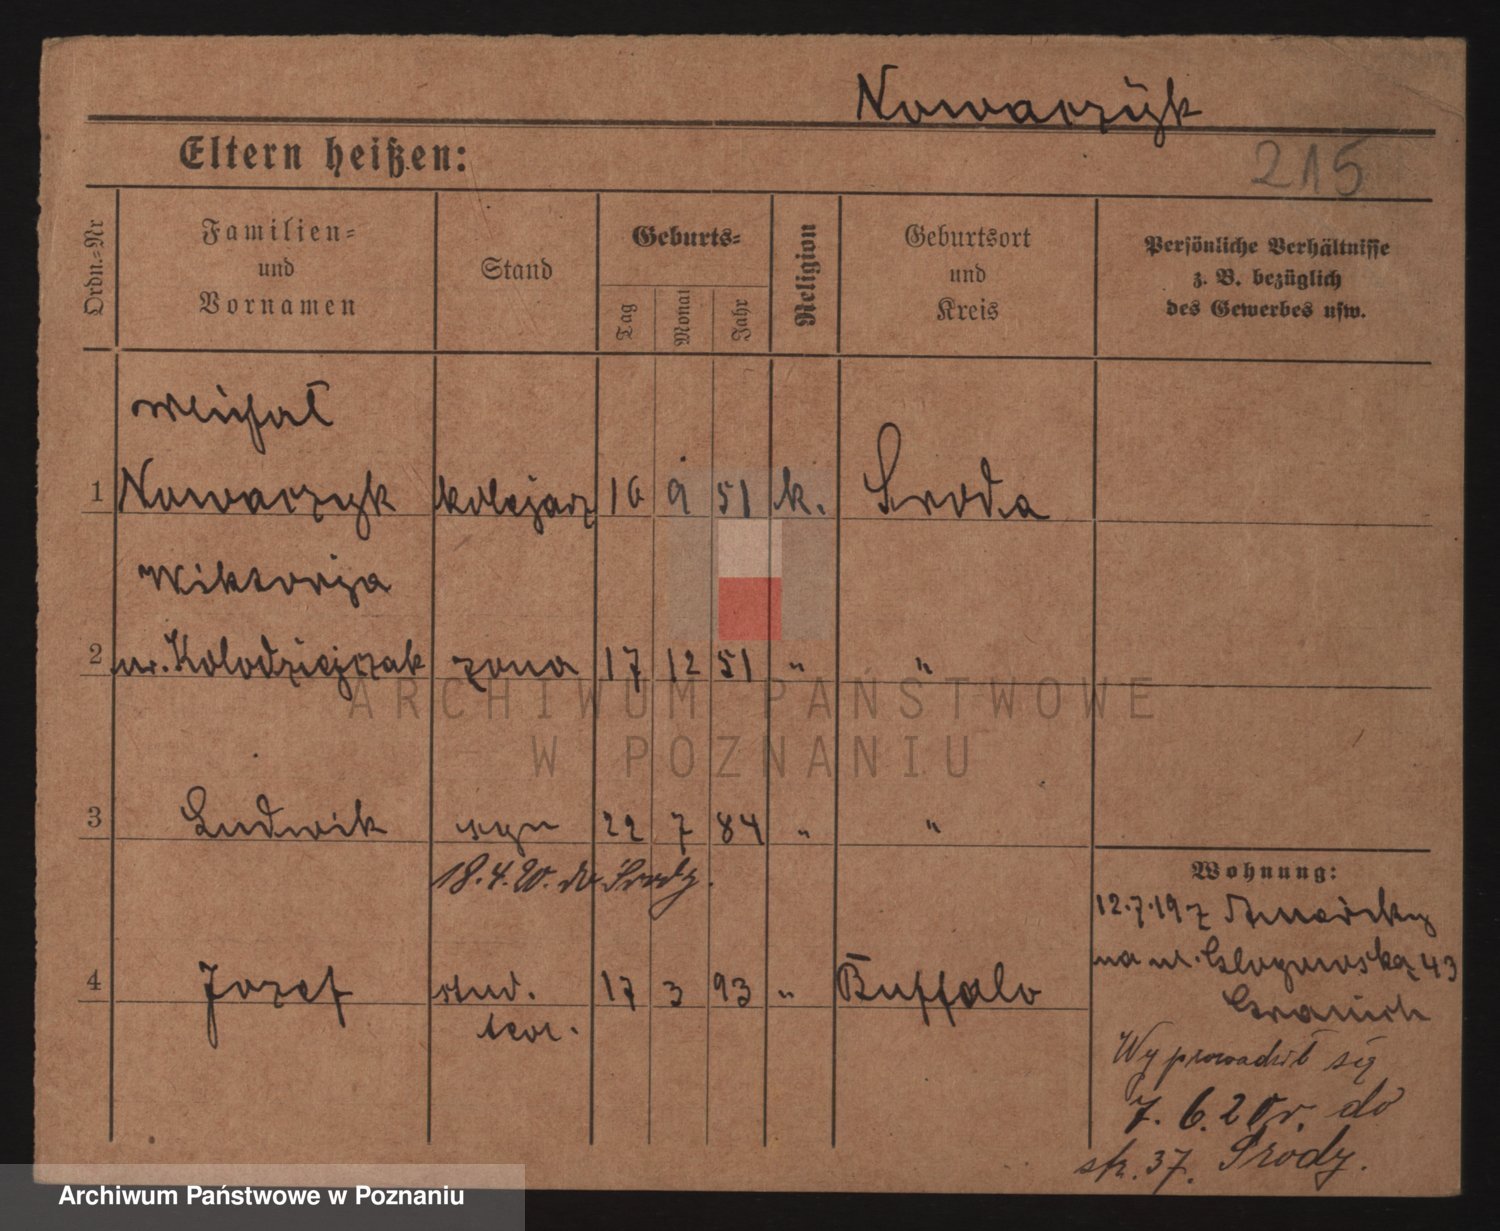 Nowarzÿk
Eltern heißen:
215
Ordn.-Nr
Familien-
und
Vornamen
Stand
Geburts-
Tag
Monat
Jahr
Religion
Geburtsort
und
Kreis
Persönliche Verhältnisse
z. B. bezüglich
des Gewerbes usw.
Michał
1 Nowarzyk kolejarz 16 9 51 k. Sroda
Wiktorja
2 ur. Kolodziejczak zona 17 12 51 " "
ARCHIWUM PAŃSTWOWE
W POZNANIU
3 Ludwik syn 22 7 84 " "
18.4.20. do Środy.
Wohnung:
12.7.19 z
na ul. Glogowską 43
4 Jozef stud. 17 3 93 " Buffalo
Wyprowadził się
7. 6. 20 r. do
str. 37. Środy.
Archiwum Państwowe w Poznaniu